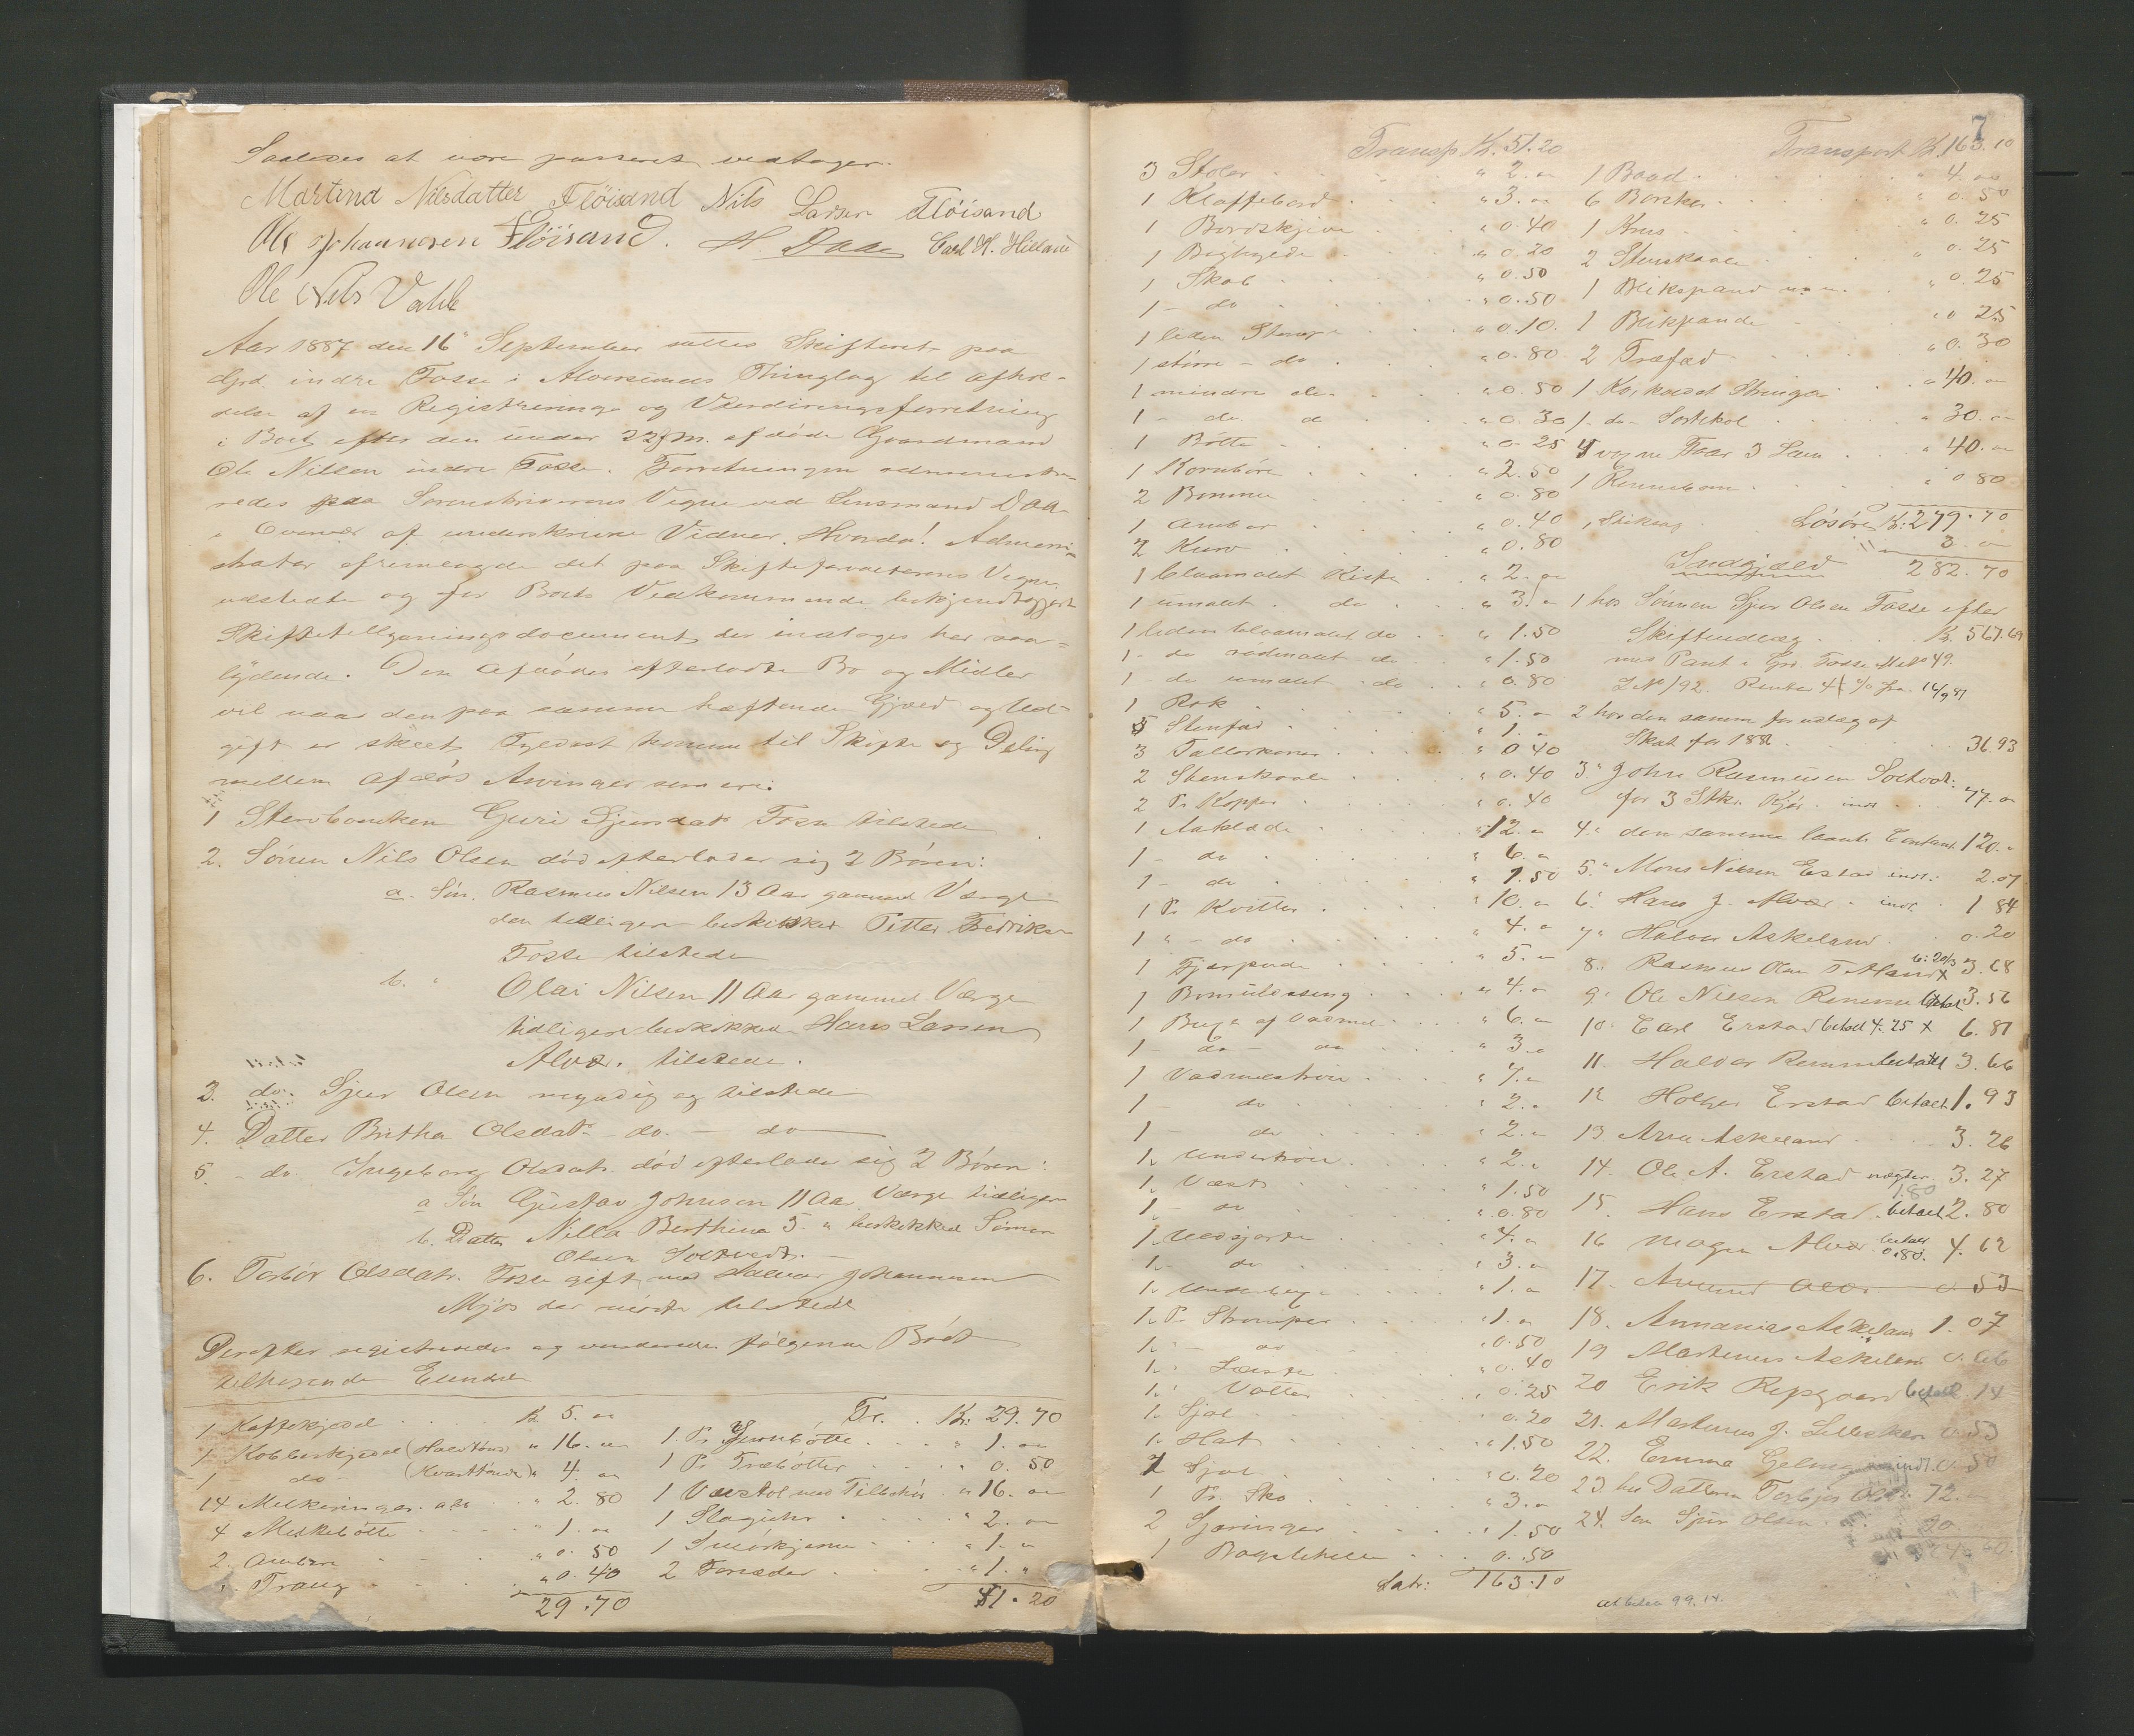 Saaledes at være passeret vedtages.
Martina Nilsdatter Fløisand Nils Larsen Fløisand
Ole Johannesen Fløisand. H. Daae Carl H. Hilland
Ole Nils Valle
Aar 1887 den 16" September sattes Skifteret paa
Grd. indre Fosse i Alversunds Thinglag til afhol-
delse af en Registrerings og Vurderingsforretning
i Boet efter den under 22 f.m. afdøde Gaardmand
Ole Nilsen indre Fosse. Forretningen administre-
redes paa Sorenskriverens Vegne ved Lensmand Daae
i Overvær af underskrevne Vidner. Hvorda! Admini-
strator fremlagde det paa Skifteforvalterens Vegne
udstedte og for Boets Vedkommende bekjendtgjort
Skiftetillysningsdocument der indtages her saa-
lydende. Den afdødes efterladte Bo og Midler
vil naar den paa samme hæftende Gjæld og Ud-
gift er skeet Fyldest komme til Skifte og Deling
mellem afdøs Arvinger som er:
1 Stervboenken Guri Sjursdatr Fosse tilstede
2. Sønnen Nils Olsen død efterlader sig 2 Børn:
a. Søn. Rasmus Nilsen 13 Aar gammel Værge
den tidligere beskikket Petter Fredriksen
Fosse tilstede
b. " Olai Nilsen 11 Aar gammel Værge
tidligere beskikket Hans Larsen
Alvær. tilstede.
3. do. Sjur Olsen myndig og tilstede
4. Datter Britha Olsdatr - do. - do
5. - do. Ingeborg Olsdatr. død efterlader sig 2 Børn:
a Søn Gustav Johnsen 11 Aar Værge tidligere
b. Datter Nilla Berthine 5. " beskikket Simon
Olsen Soltvedt.
6. Torbør Olsdatr. Fosse gift med Halvor Johannesen
Mjøs der mødte tilstede
Derefter registreredes og vurderedes følgende Boet
tilhørende Eiendele
1 Kaffekjedel . . . Kr 5. "
1 Kobberkjedel (Halvtønde) " 16. "
1 - do - (Kvarttønde) " 4. "
14 Melkeringer a 20 . " 2. 80
4 Melkebøtte . . . " 1. "
2. Ambere . . . " 0. 50
1 Traug . . . " 0. 40
29.70
Tr. . Kr. 29. 70
1. Pr Jernbøtte . . . " 1. "
1 Pr Træbøtter . . . 0. 50
1 Vævstol med Tilbehør . " 16. "
1 Slaguhr . . . " 2. "
1 Smørkjerne . . . " 1. "
2 . . . " 1. "
51.20
7
Transp Kr. 51.20
3 Stoler . . . " 2. "
1 Klaffebord . . . " 3. "
1 Bordskive . . . " 0.40
1 Boghylde . . . " 0.20
1 Skab . . . " 0.50
1 - do . . . " 0.50
1 liden Stamp . . . " 0.10.
1 større - do . . . " 0.80
1 mindre do . . . " 0.50
1 - do d . . . " 0.30
1 Bøtte . . . " 0. 25
1 Kornbøre . . . " 2.50
2 Bommer . . . " 0.80
1 Ambar . . . " 0.40
2 Kurv . . . " 0.80
1 blaamalet Kiste . . " 2. "
1 umalet . do . . . " 3. "
1 liden blaamalet do . . " 1.50
1 - do rødmalet do . . " 1.50
1 - do umalet - do . . " 0.80
1 Rok . . . " 5. "
5 Stenfad . . . " 1. "
3 Tallerkener . . . " 0 40
2 Stenskaale . . . " 0. 40
2 Pr Kopper . . . " 0. 40
1 Aaklæde . . . " 12. "
1 - do . . . " 6. "
1 - do . . . " 1.50
1 Pr Kvitler . . . " 10. "
1 " - do . . . " 4. "
1 Fjærpude . . . " 5. "
1 Bomulessing . . . " 4. "
1 Buxe af Vadmel . . . " 6. "
1 - do - do . . . " 3. "
1 Vadmelstrøie . . . " 7. "
1 - do . . . " 2. "
1 - do . . . " 2. "
1. Undertrøie . . . " 2. "
1. Vest . . . " 1.50
1. - do . . . " 0.80
1. Uldskjorte . . . " 4. "
1. - do . . . " 3. "
1. Underbuxe . . . " 1. "
1. Pr. Strømper . . . " 1. "
1. - do . . . " 0.50
1. " Læste . . . " 0. 40
1. " Votter . . . " 0. 25
1. Sjal . . . 0. 20
1. Hat . . . " 1.50
1 Sjal . . . " 0. 20
1 Pr. Sko . . . " 3. "
2 Sjøringer . . . " 1.50
1 Bogstikelle . . . 0. 50
Latr: 163.10
Transport Kr. 163.10
1 Baad . . . " 4. "
6 Børster . . . " 0. 50
1 Krus . . . " 0. 25
2 Stenskaale . . . " 0. 25
1 Blikspand m. m. . . . " 0. 25
1 Blikpande . . . " 0 25
2 Træfad . . . " 0. 30
1 Ko, kaldet Stringa . . . " 40. "
1 - do - Sortekol . . . " 30. "
4 voxne Faar 3 Lam . . . " 40. "
1 Rennebom . . . " 0 80
Løsøre Kr. 279.70
3. "
Indgjæld 282. 70
1 hos Sønnen Sjur Olsen Fosse efter
Skifteudlæg . . . Kr. 567.69
med Pant i Grd. Fosse Mtr No 49.
L No 192. Renter 4 % fra 16/9 87
2 hos den samme for udlæg af
Skat for 1886 . . . 36.93
3." John Rasmussen Soltvet:
for 3 Stk. Kjør. indr . . 77. "
4." den samme laante Contant 120. "
5." Mons Nilsen Erstad indr: 2.07
6." Hans J. Alvær . indr. . 1 84
7" Halvor Askeland . . 0. 20
8." Rasmus Olsen Tetland x 3.68
9." Ole Nilsen Remme betalt 3.56
10" Carl Erstad betalt 4.25 x 6. 81
11. Halvor Remme betalt 3.66
12 Holger Erstad betalt 1. 93
13 Arne Askeland . . . 3. 26
14. Ole A. Erstad nægter 3. 27
1.80
15. Hans Erstad . betalt 2. 80
16 Mogn Alvær betalt 0.80. 4. 62
17. Alvær 53
18. Annanias Askeland 1. 07
19 Martinus Askeland 0. 66
20 Erik Repgaard betalt . 14
21. Martinus J. 0. 53
22. Emma indr. 0. 50
23. hos Datteren Torbjør Olsdr. 72.
24. Søn Sjur Olsen . . . 20
99. 14.